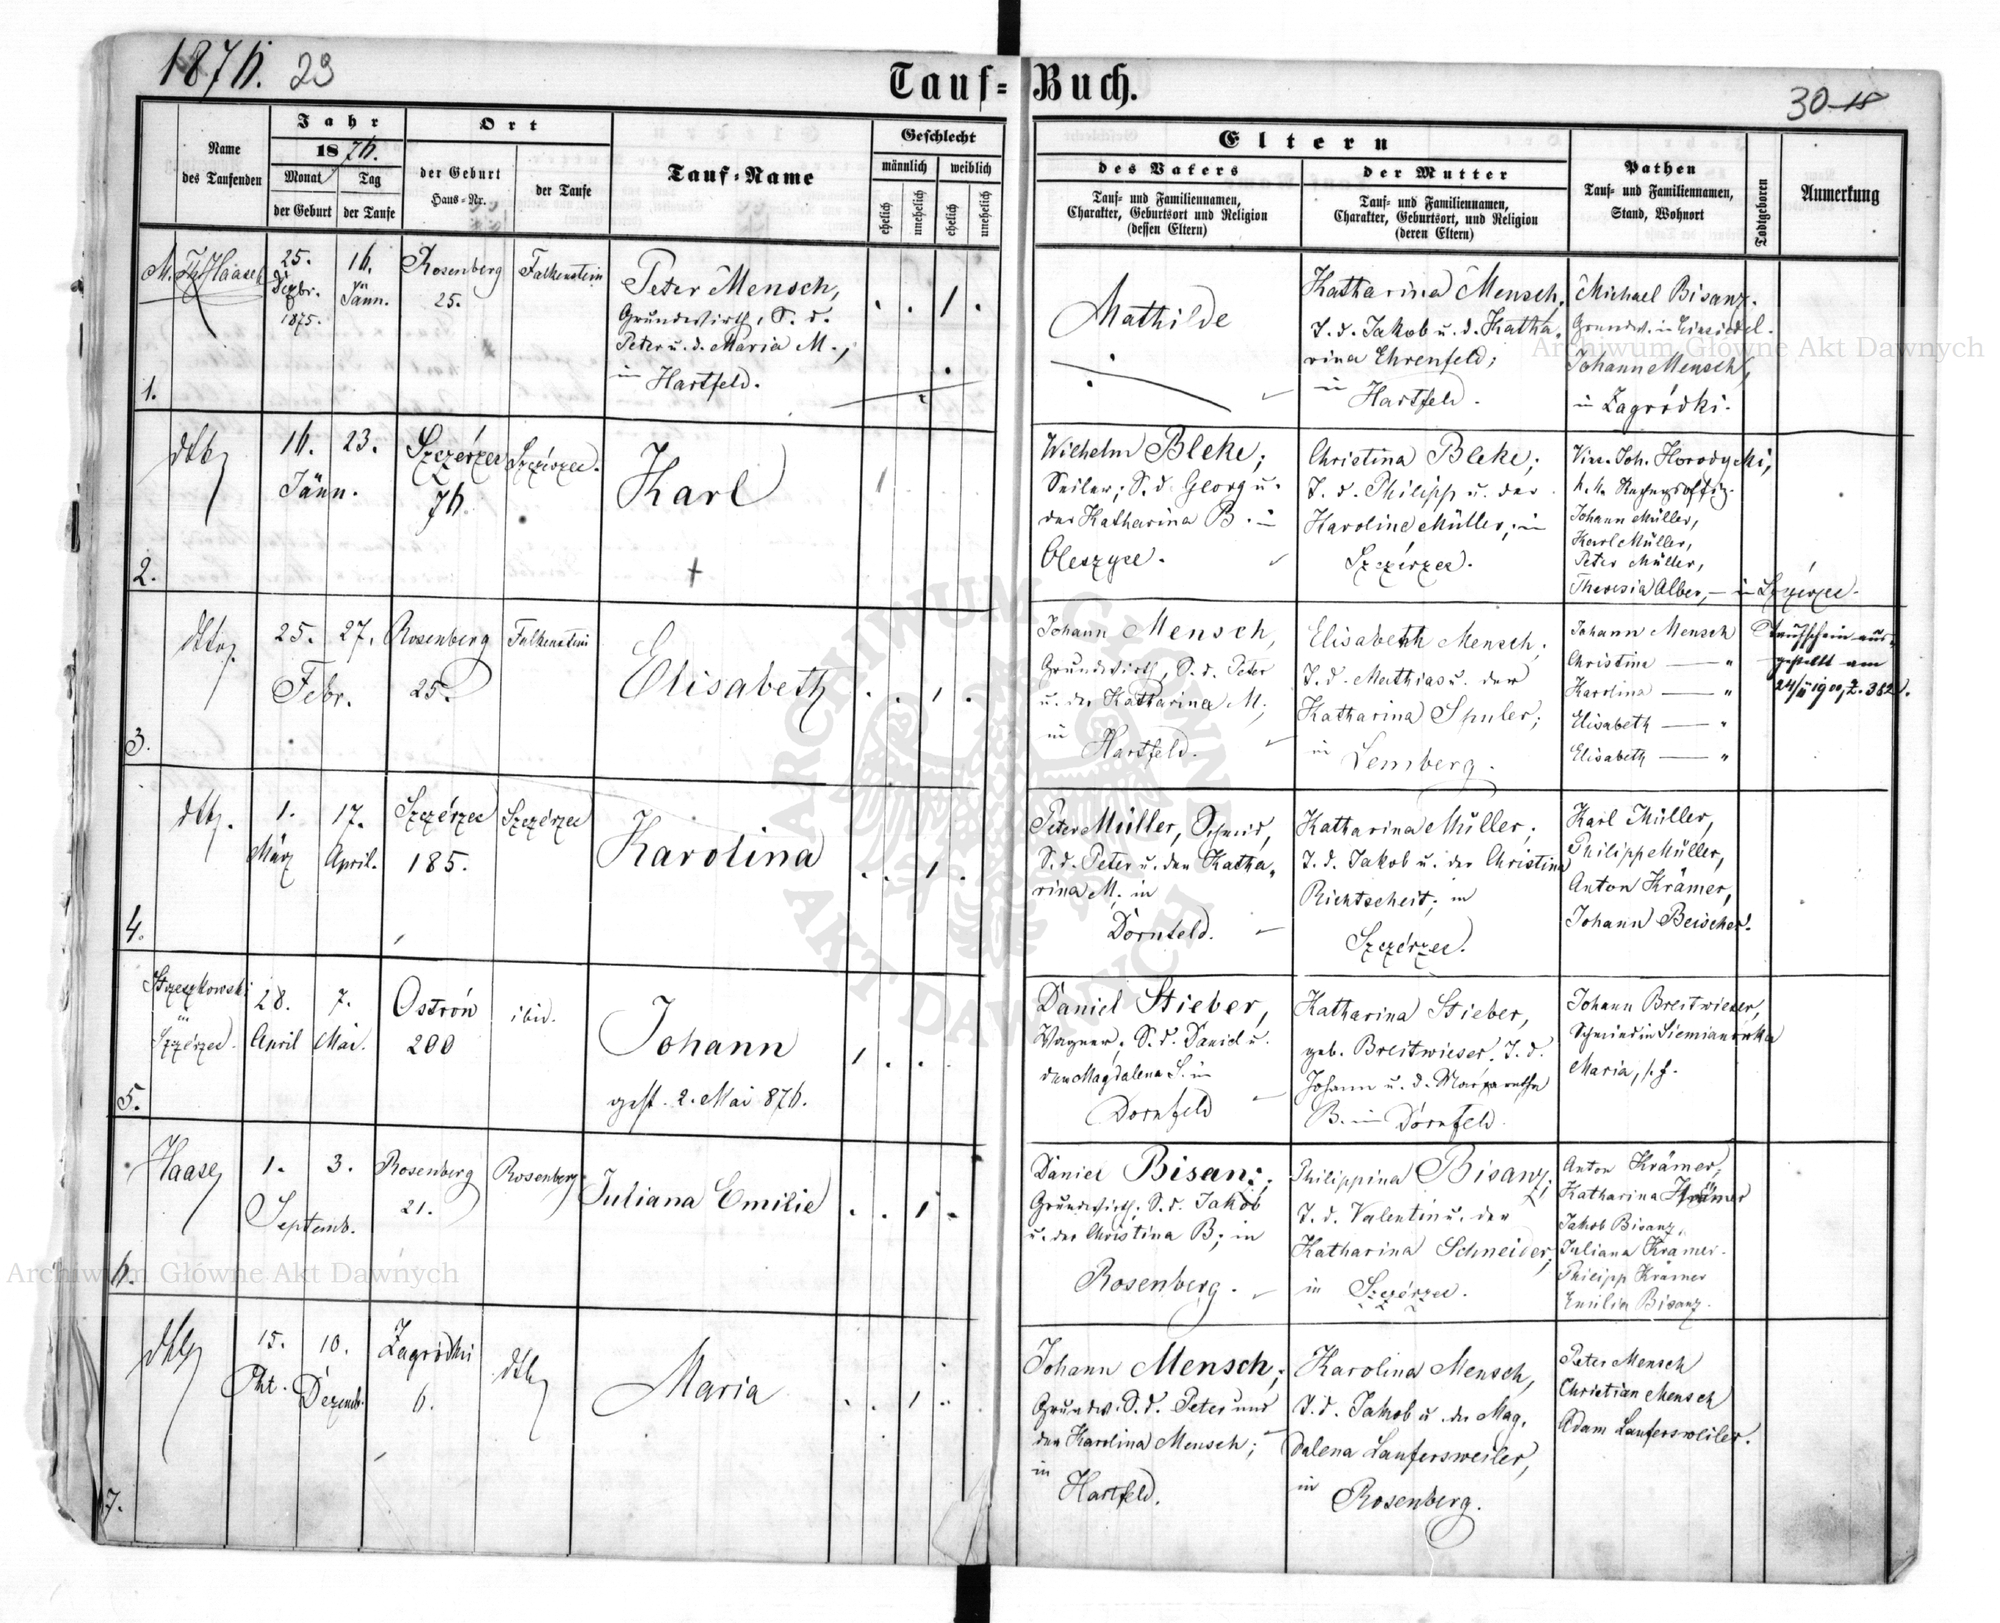 1876. 29
Tauf-Buch.
30
Name
des Taufenden
Jahr
1876.
Monat
Tag
der Geburt
der Taufe
Ort
der Geburt
Haus-Nr.
der Taufe
Tauf-Name
Geschlecht
männlich
weiblich
ehelich
unehelich
ehelich
unehelich
Eltern
des Vaters
Tauf- und Familiennamen,
Charakter, Geburtsort und Religion
(dessen Eltern)
der Mutter
Tauf- und Familiennamen,
Charakter, Geburtsort, und Religion
(deren Eltern)
Pathen
Tauf- und Familiennamen,
Stand, Wohnort
Todtgeboren
Anmerkung
1.
Haase
25.
Dezbr.
1875.
16.
Jänn.
Rosenberg
25.
Falkenstein
Peter Mensch,
Grundwirth, S. d.
Peter u. d. Maria M.,
in Hartfeld.
1
Mathilde
Katharina Mensch,
T. d. Jakob u. d. Katha-
rina Ehrenfeld;
in
Hartfeld.
Michael Bisanz.
Grundw. in Einsiedel.
Johann Mensch,
in Zagródki.
2.
dtto
16.
Jänn.
23.
Szczérzec
76
Szczérzec.
Karl
1
Wilhelm Bleke;
Seiler; S. d. Georg u.
der Katharina B. in
Oleszyce.
Christina Bleke;
T. d. Philipp u. der
Karoline Müller, in
Szczérzec.
Vinc. Joh. Horodycki,
Johann Müller,
Karl Müller,
Peter Müller,
Theresia Alber, — in Szczérzec.
3.
dtto.
25.
Febr.
27.
Rosenberg
25.
Falkenstein
Elisabeth
1
Johann Mensch,
Grundwirth, S. d. Peter
u. der Katharina M;
in
Hartfeld.
Elisabeth Mensch;
T. d. Mathias u. der
Katharina Spuler;
in
Lemberg.
Johann Mensch
Christina — "
Karolina — "
Elisabeth — "
Elisabeth — "
Taufschein aus-
gestellt am
24/II 1900, Z. 382.
4.
dtto.
1.
März
17.
April.
Szczérzec
185.
Szczérzec
Karolina
1
Peter Müller, Schmid,
S. d. Peter u. der Katha-
rina M; in
Dornfeld.
Katharina Müller;
T. d. Jakob u. der Christina
Richtscheit; in
Szczérzec.
Karl Müller,
Philipp Müller,
Anton Krämer,
Johann Beischer.
5.
Strzeszkowski
in
Szczérzec.
28.
April
7.
Mai.
Ostrón
200
ibid.
Johann
gest. 2. Mai 876.
1
Daniel Stieber,
Wagner, S. d. Daniel u.
der Magdalena S. in
Dornfeld
Katharina Stieber,
geb. Breitwieser, T. d.
Johann u. d. Margarethe
B. in Dornfeld.
Johann Breitwieser,
Schmied in Siemianówka
Maria,
6.
Haase
1.
3.
Septemb.
Rosenberg
21.
Rosenberg
Juliana Emilie
1
Daniel Bisanz;
Grundwirth, S. d. Jakob
u. der Christina B; in
Rosenberg.
Philippina Bisanz;
T. d. Valentin u. der
Katharina Schneider;
in Szczérzec.
Anton Krämer,
Katharina Krämer
Jakob Bisanz,
Juliana Krämer.
Philipp Krämer
Emilia Bisanz.
7.
dtto
15.
Okt.
10.
Dezemb.
Zagródki
6.
dtto
Maria
1
Johann Mensch;
Grundw. S. d. Peter und
der Karolina Mensch;
in
Hartfeld.
Karolina Mensch,
T. d. Jakob u. der Mag-
dalena Laufersweiler,
in
Rosenberg.
Peter Mensch
Christian Mensch
Adam Laufersweiler.
Archiwum Główne Akt Dawnych
Archiwum Główne Akt Dawnych
ARCHIWUM GŁÓWNE AKT DAWNYCH